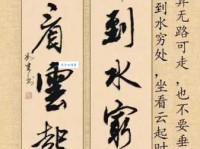 无路可走，也不要垂
到水穷处，坐看云起时
到水窮
看雲起